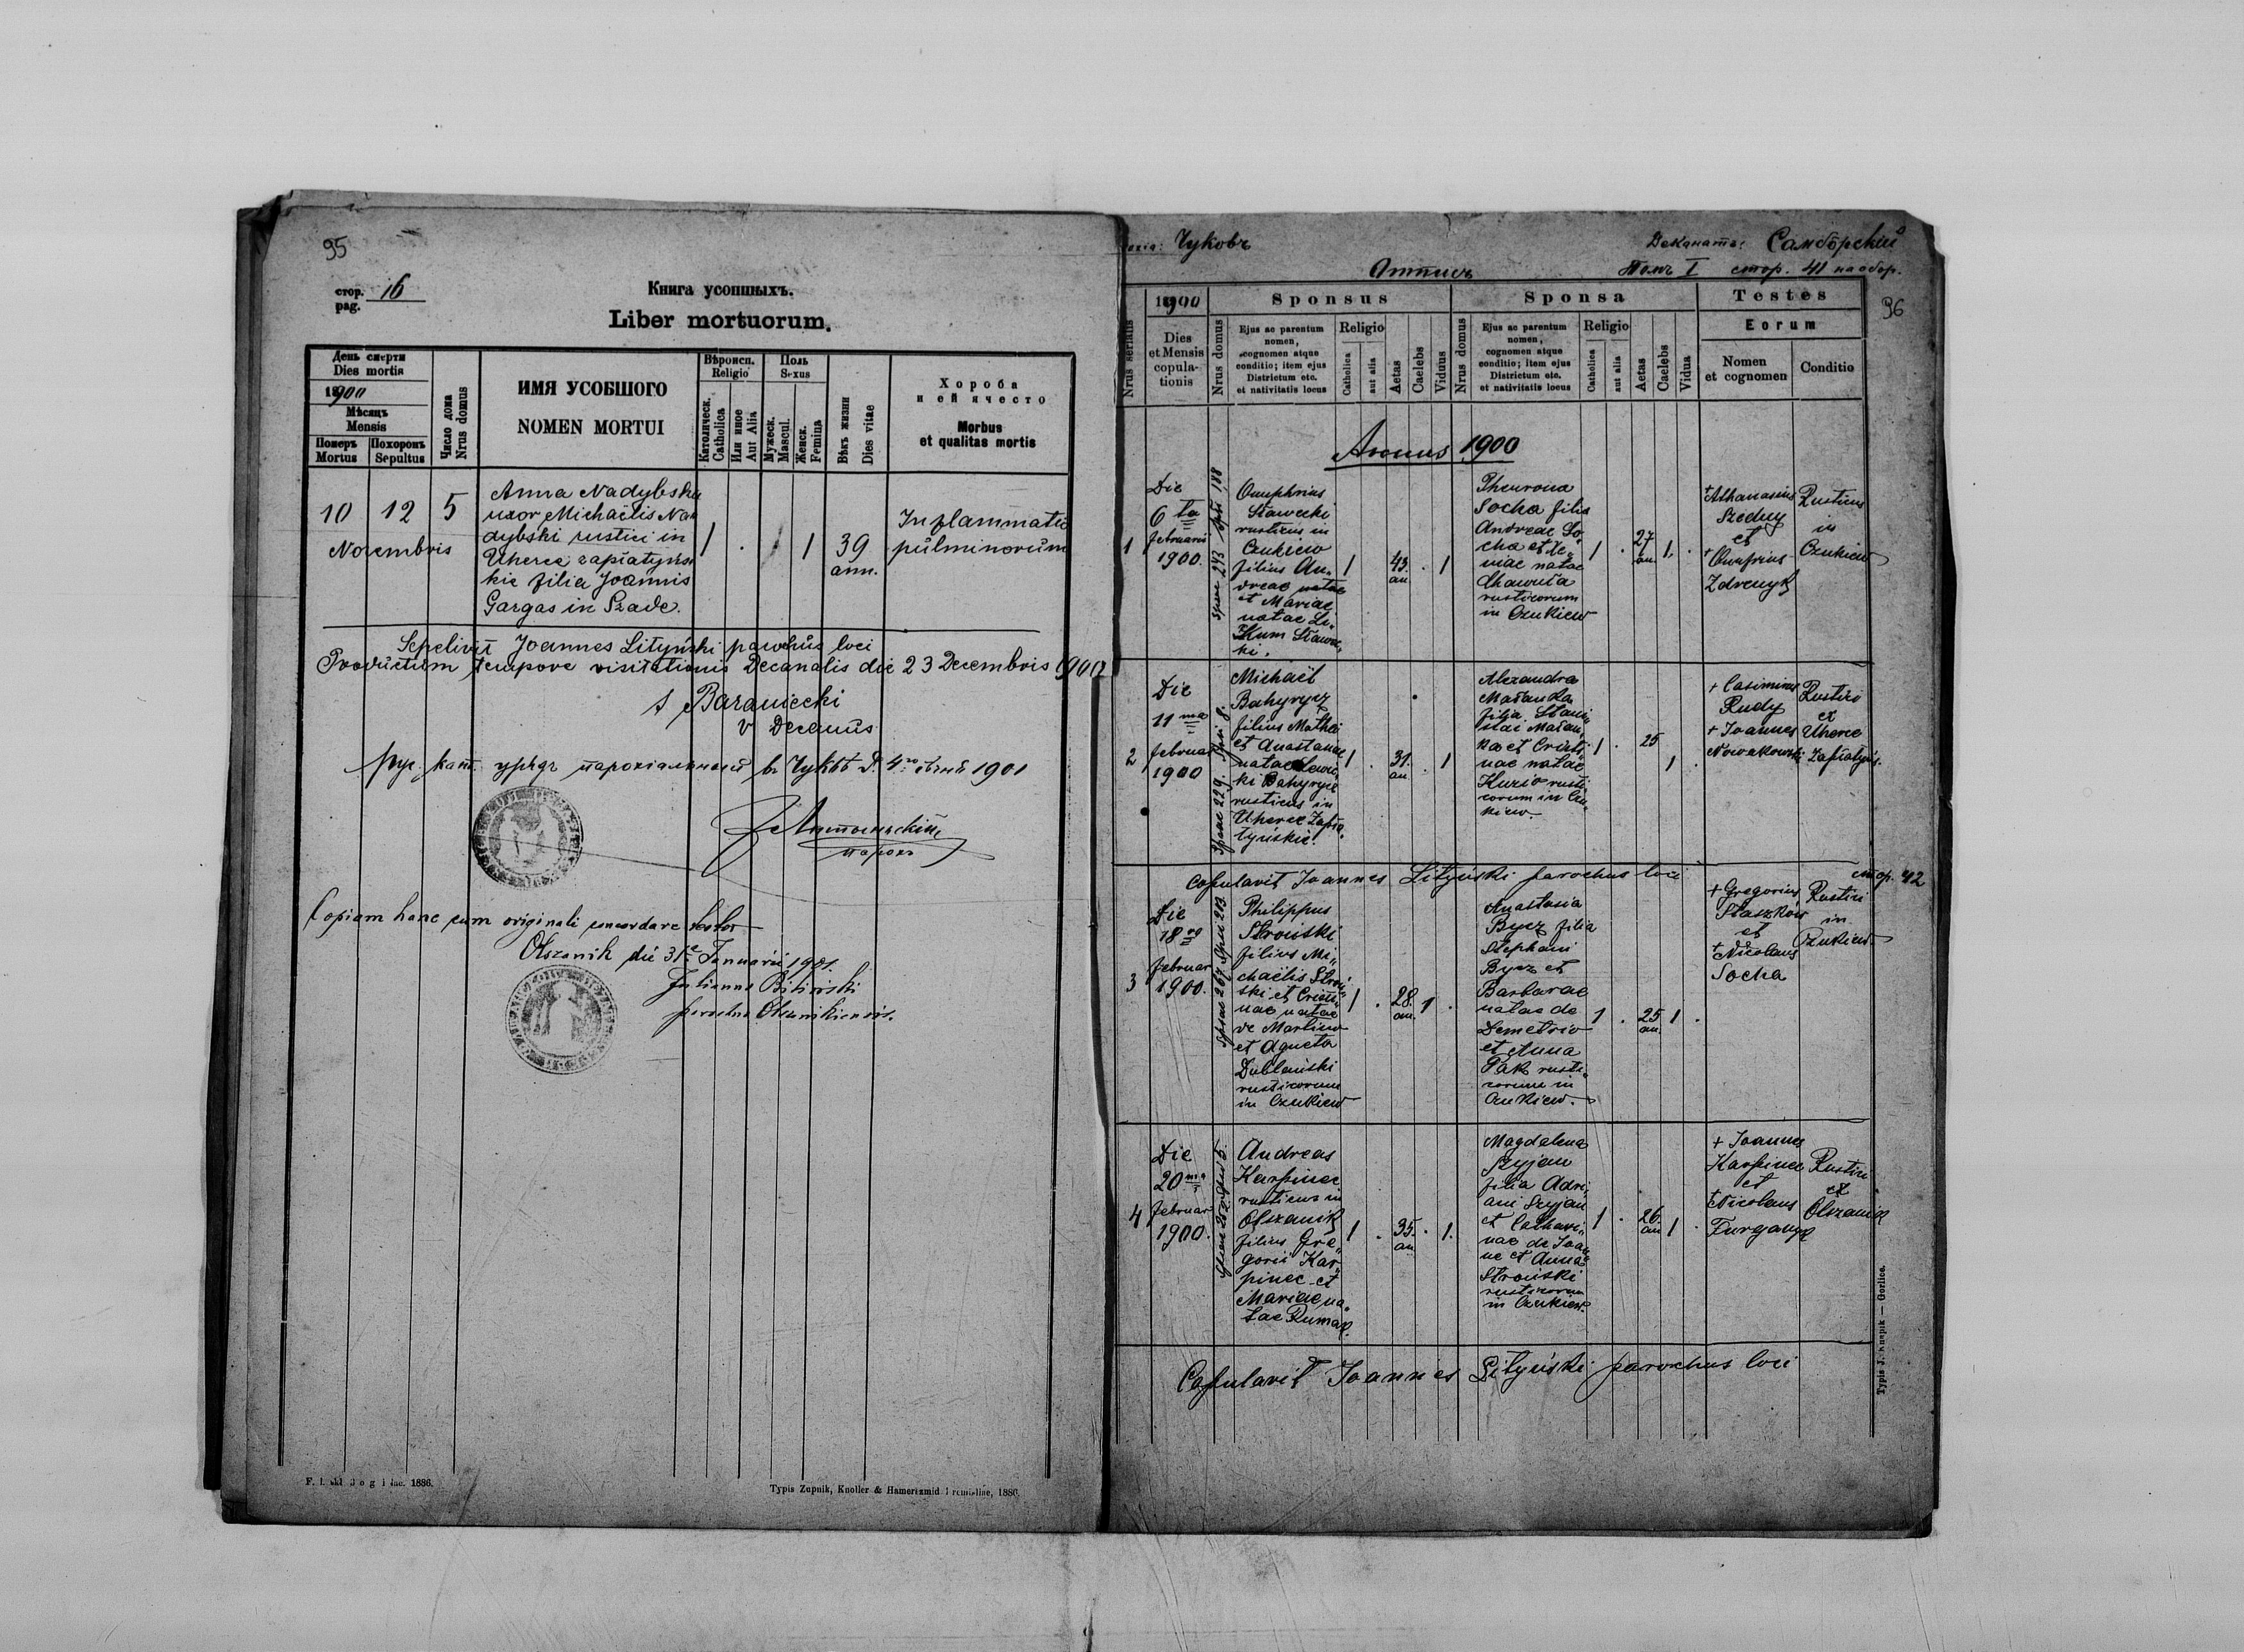 95
стор. 16
pag.
Книга усопшыхъ.
Liber mortuorum.
День смерти
Dies mortis
1900
Мѣсяць
Mensis
Померъ
Mortus
Похоронъ
Sepultus
Число дома
Nrus domus
ИМЯ УСОБШОГО
NOMEN MORTUI
Вѣроисп.
Religio
Католическ.
Catholica
Или иное
Aut Alia
Поль
Sexus
Мужеск.
Mascul.
Женск.
Femina
Вѣкъ жизни
Dies vitae
Хороба
и ей ячесто
Morbus
et qualitas mortis
10 12
Novembris
5
Anna Nadybska
uxor Michaëlis Na
dybski rustici in
Uherce zapłatyńs
kie filia Joannis
Gargas in Szade.
1 . 1
39
ann.
Inflammatio
pulminorum
Sepelivit Joannes Lityński parochus loci
Productum tempore visitationis Decanalis die 23 Decembris 1900
Baraniecki
V Decanus
рус. кат. урядъ парохіальный въ Чуквѣ д. 4го січня 1901
парох
Copiam hanc cum originali concordare testor
Olszanik die 31 Januarii 1901.
Julianus
parochus Olszanikiensis.
Typis Zupnik, Knoller & Hamerszmid Premisliae, 1886.
Чуковъ
Деканатъ: Самборскій
Отписъ
Томъ I стор. 41 на обор.
96
Nrus serialis
1900
Dies
et Mensis
copula-
tionis
Sponsus
Nrus domus
Ejus ac parentum
nomen,
cognomen atque
conditio; item ejus
Districtum etc.
et nativitatis locus
Religio
Catholica
aut alia
Aetas
Caelebs
Viduus
Sponsa
Nrus domus
Ejus ac parentum
nomen,
cognomen atque
conditio; item ejus
Districtum etc.
et nativitatis locus
Religio
Catholica
aut alia
Aetas
Caelebs
Vidua
Testes
Eorum
Nomen
et cognomen
Conditio
Annus 1900
1
Die
6 ta
februarii
1900.
Onuphrius
Stawecki
rusticus in
Czukiew
filius An-
dreae natae
et Mariae
natae Li-
kum Stawec-
ki.
1 43. an. . 1
Socha filia
Andreae So-
cha et Xe-
niae natae
rusticorum
in Czukiew
1 . 27 an. 1. .
+ Athanasius
Szedny
et
+ Onuprius
Zdrenyk
Rusticus
in
Czukiew
2
Die
11 ma
februar
1900
Michaël
Bahyrycz
filius Mathei
et Anastasiae
natae
ki Bahyrycz
rusticus in
Uherce Zapła-
tyńskie.
1 . 31. an. . 1
Alexandra
filia Stani-
nae natae
Kuzio rusti-
corum in Czu-
kiew.
1 . 25 1 .
+ Casimirus
Rudy
+ Joannes
Nowakowski
Rustici
et
Uherce
Zapłatyńs.
Copulavit Joannes Lityński parochus loci
стор. 42
3
Die
18 va
februar
1900.
Philippus
Stroński
filius Mi-
chaëlis Stroń-
ski et Cristi-
nae natae
de Martino
et Agneta
Dublański
rusticorum
in Czukiew
1 . 28. an. 1 .
Anastasia
Bycz filia
Stephani
Bycz et
Barbarae
natae de
Demetrio
et Anna
Pak rusti-
corum in
Czukiew.
1 . 25 an. 1 .
+ Gregorius
Staszków
et
+ Nicolaus
Socha
Rustici
in
Czukiew
4
Die
20 ma
februar
1900.
Andreas
Karpinec
rusticus in
Olszanik
filius Gre-
gorii Kar-
pinec et
Mariae na-
tae Rumak.
1 . 35. an . 1.
Magdalena
Szyjan
filia Adri-
ani Szyjan
et Cathari-
nae de Joan-
ne et Anna
Stroński
rusticorum
in Czukiew.
1 . 26. an 1 .
+ Joannes
Karpinec
et
+ Nicolaus
Furgangl
Rustici
et
Olszanik
Copulavit Joannes Lityński parochus loci